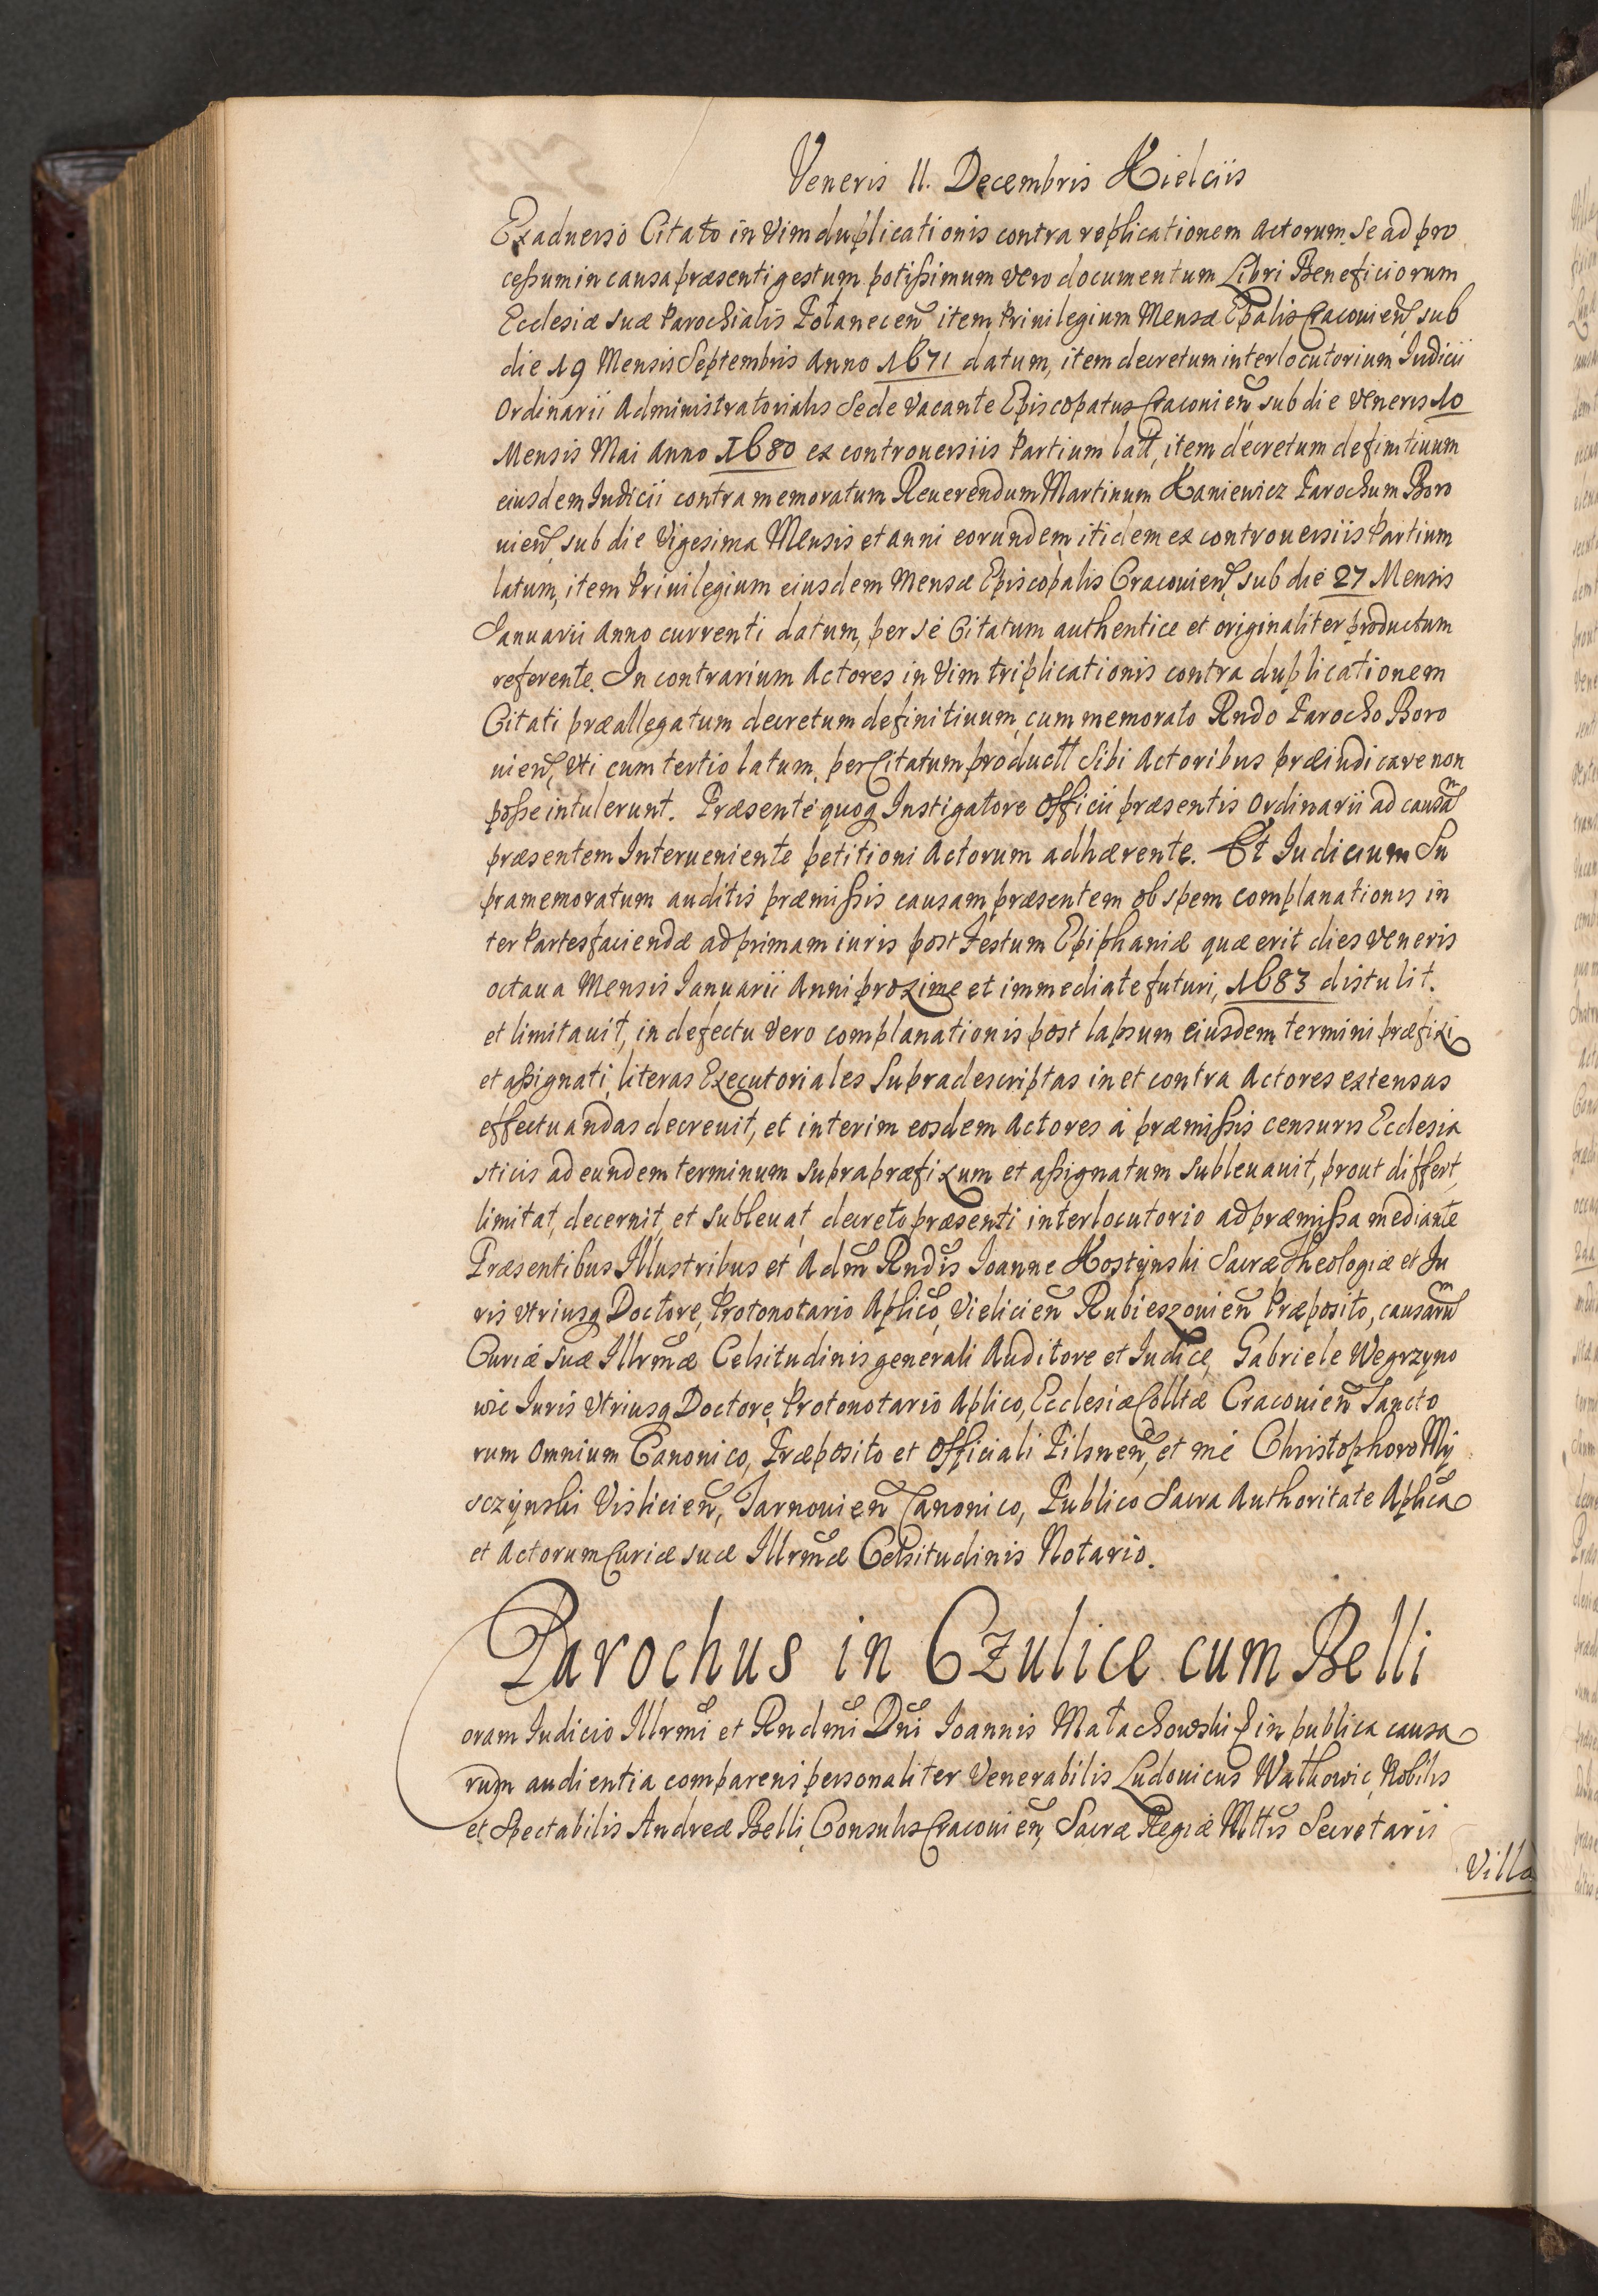 Veneris 11. Decembris Kielciis
Exaduerso Citato in Vim duplicationis contra replicationem Actorum. Se ad pro
cessum in causa præsenti gestum potissimum vero documentum Libri Beneficiorum
Ecclesiæ suæ Parochialis Połanecen̄ item Priuilegium Mensæ Ep̄alis Cracouien̄ sub
die 19 Mensis Septembris Anno 1671 datum, item decretum interlocutorium Iudicii
Ordinarii Administratorialis Sede Vacante Episcopatus Cracouien̄ sub die Veneris 10
Mensis Mai Anno 1680 ex controuersiis Partium latt̄, item decretum definitiuum
eiusdem Iudicii contra memoratum Reuerendum Martinum Kaniewicz Parochum Boro
uien̄ sub die Vigesima Mensis et anni eorundem itidem ex controuersiis Partium
latum, item Priuilegium eiusdem Mensæ Episcopalis Cracouien̄, sub die 27 Mensis
Ianuarii Anno currenti datum, per se Citatum authentice et originaliter productum
referente. In contrarium Actores in Vim triplicationis contra duplicationem
Citati præallegatum decretum definitiuum cum memorato Rndo Parocho Boro
uien̄, Vti cum tertio latum, per Citatum productt̄ sibi Actoribus præiudicare non
posse intulerunt. Præsente quoq Instigatore Officii præsentis Ordinarii ad causam
præsentem Interueniente petitioni Actorum adhærente. Et Iudicium Su
pramemoratum auditis præmissis causam præsentem ob spem complanationis in
ter Partes faciendæ ad primam iuris post Festum Epiphaniæ quæ erit dies Veneris
octaua Mensis Ianuarii Anni proxime et immediate futuri, 1683 distulit.
et limitauit, in defectu vero complanationis post lapsum eiusdem termini præfixi
et assignati, literas Executoriales Supradescriptas in et contra Actores extensas
effectuandas decreuit, et interim eosdem Actores á præmissis censuris Ecclesia
sticis ad eundem terminum supra præfixum et assignatum subleuauit, prout differt,
limitat, decernit, et subleuat, decreto præsenti interlocutorio ad præmissa mediante
Præsentibus Illustribus et Adm̄ Rndis Ioanne Kostynski Sacræ Theologiæ et Iu
ris vtriusq Doctore, Protonotario Aplico, Vielicien̄ Rubieszouien̄ Præposito, causarum
Curiæ suæ Illrmæ Celsitudinis generali Auditore et Iudice, Gabriele Wegrzyno
wic Iuris Vtriusq Doctore, Protonotario Aplico, Ecclesiæ Colltæ Cracouien̄ Sancto
rum Omnium Canonico, Præposito et Officiali Pilsnen̄, et me Christophoro My
sczynski Vislicien̄, Tarnouien̄ Canonico, Publico Sacra Authoritate Aplica
et Actorum Curiæ suæ Illrmæ Celsitudinis Notario.
Parochus in Czulice cum Belli
Coram Iudicio Illrmi et Rndmi Dni Ioannis Małachowski & in publica causa
rum audientia comparens personaliter Venerabilis Ludouicus Wathowic, Nobilis
et Spectabilis Andreæ Belli, Consulis Cracouien̄, Sacræ Regiæ Mttis Secretarii
Villa